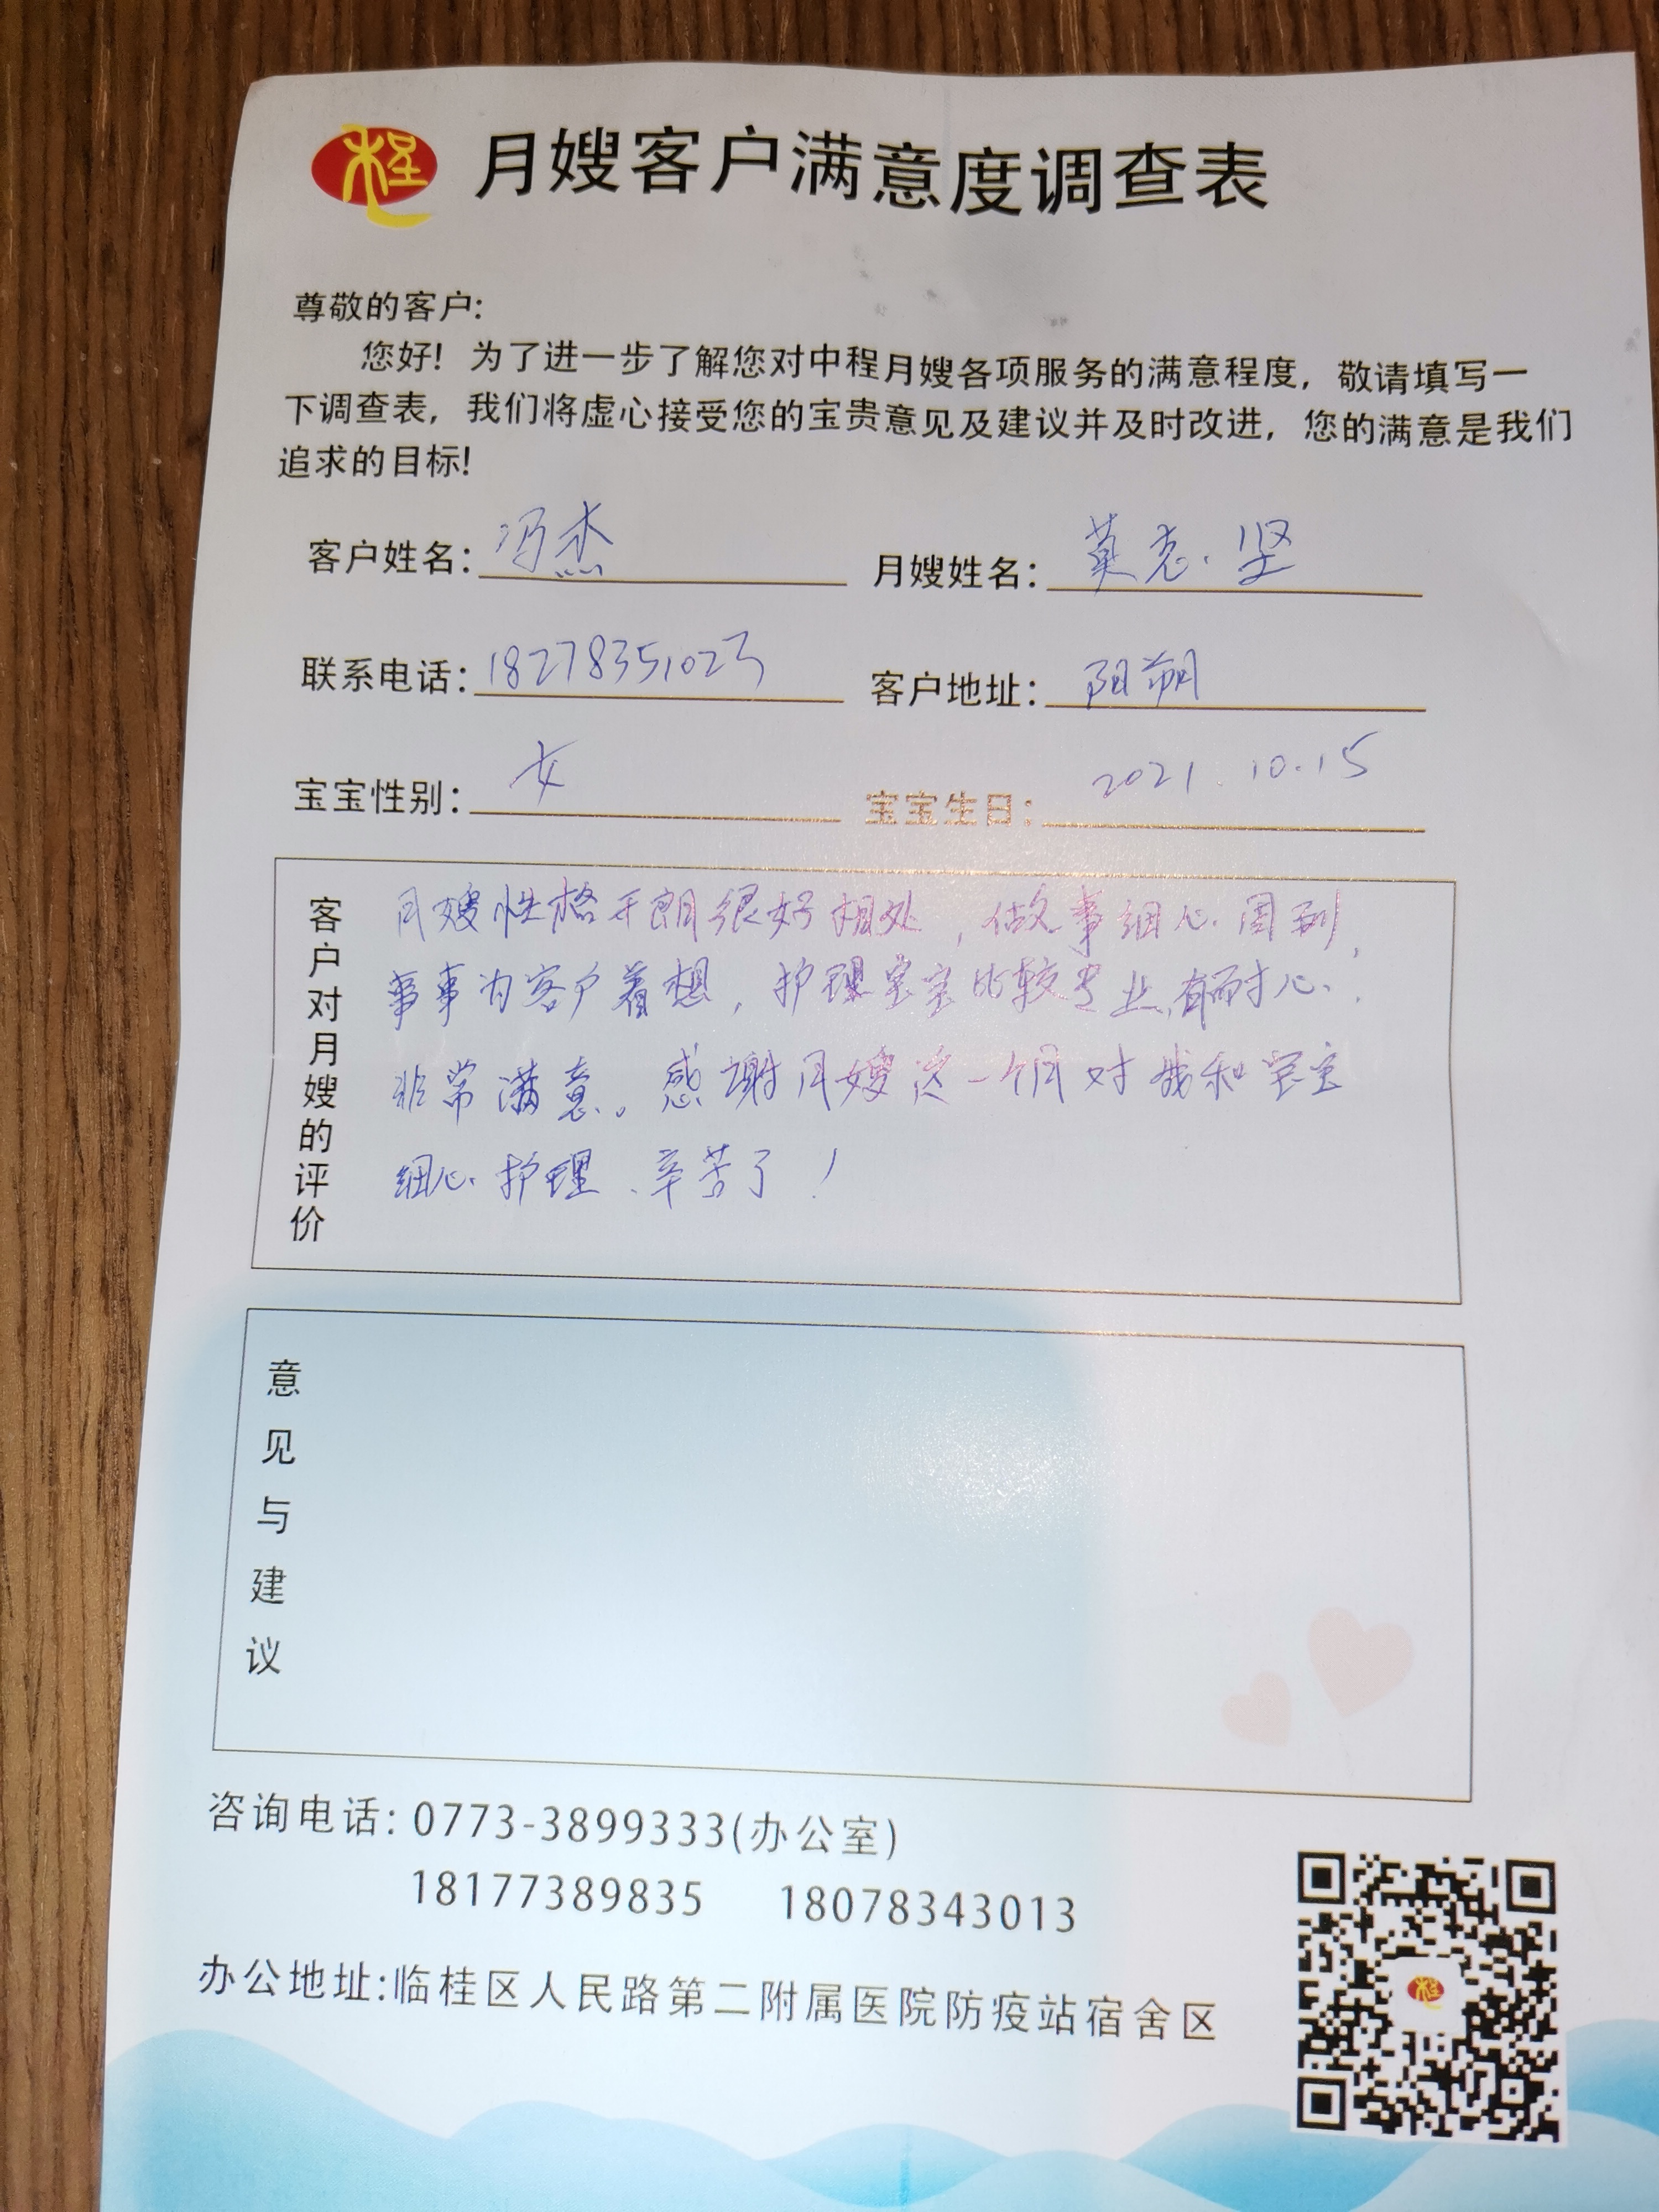 程 月嫂客户满意度调查表
尊敬的客户:
您好! 为了进一步了解您对中程月嫂各项服务的满意程度, 敬请填写一
下调查表, 我们将虚心接受您的宝贵意见及建议并及时改进, 您的满意是我们
追求的目标!
客户姓名: 冯杰 月嫂姓名: 莫志坚
联系电话: 18278351023 客户地址: 阳朔
宝宝性别: 女 宝宝生日: 2021.10.15
客户对月嫂的评价
月嫂性格开朗很好相处, 做事细心周到,
事事为客户着想, 护理宝宝比较专业,有耐心.
非常满意。感谢月嫂这一个月对我和宝宝
细心护理、辛苦了!
意见与建议
咨询电话: 0773-3899333(办公室)
18177389835 18078343013
办公地址:临桂区人民路第二附属医院防疫站宿舍区
程